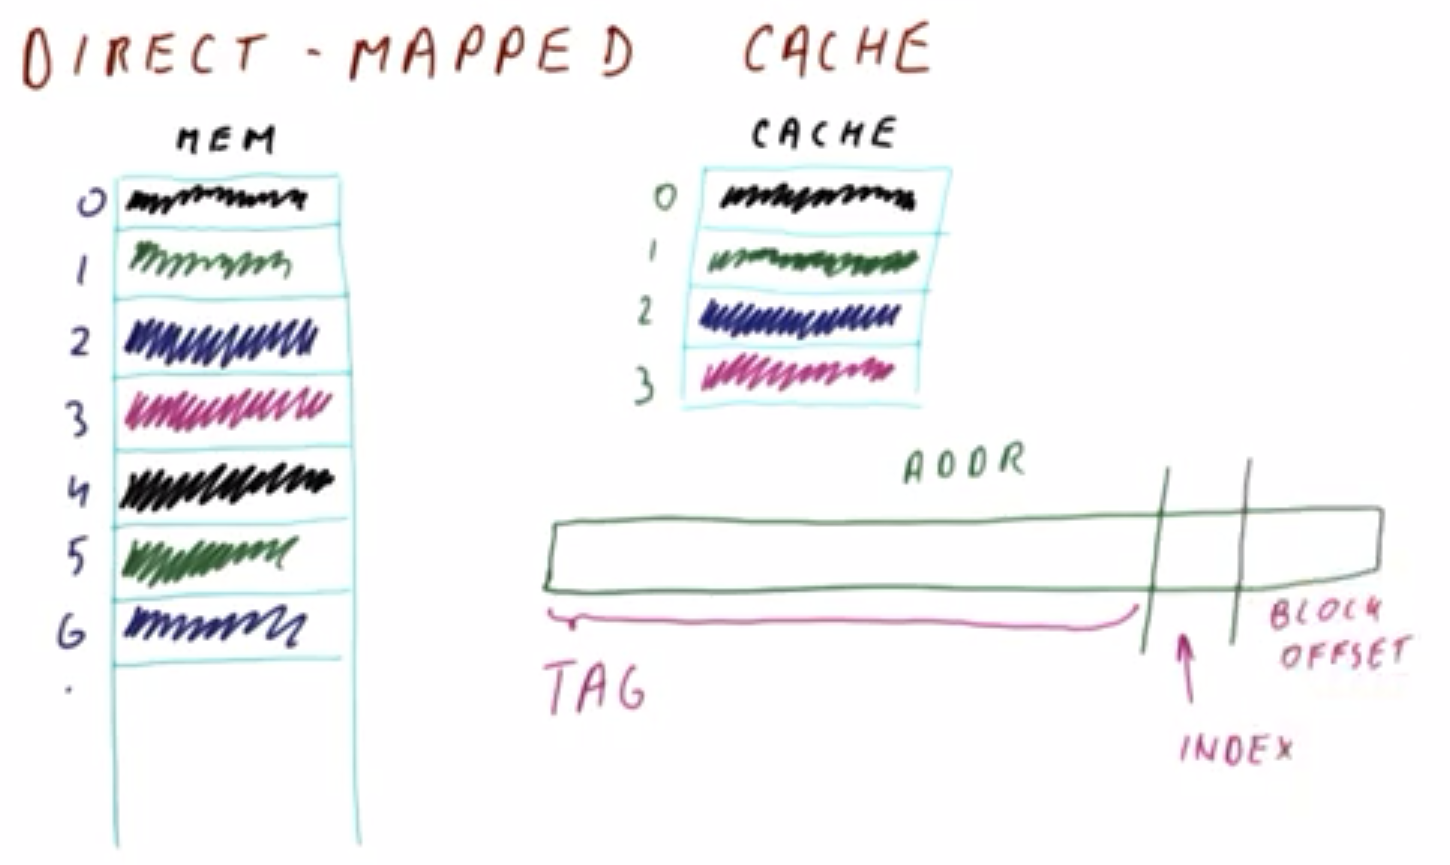 DIRECT-MAPPED CACHE
MEM
0
1
2
3
4
5
6
.
CACHE
0
1
2
3
ADDR
TAG
INDEX
BLOCK
OFFSET